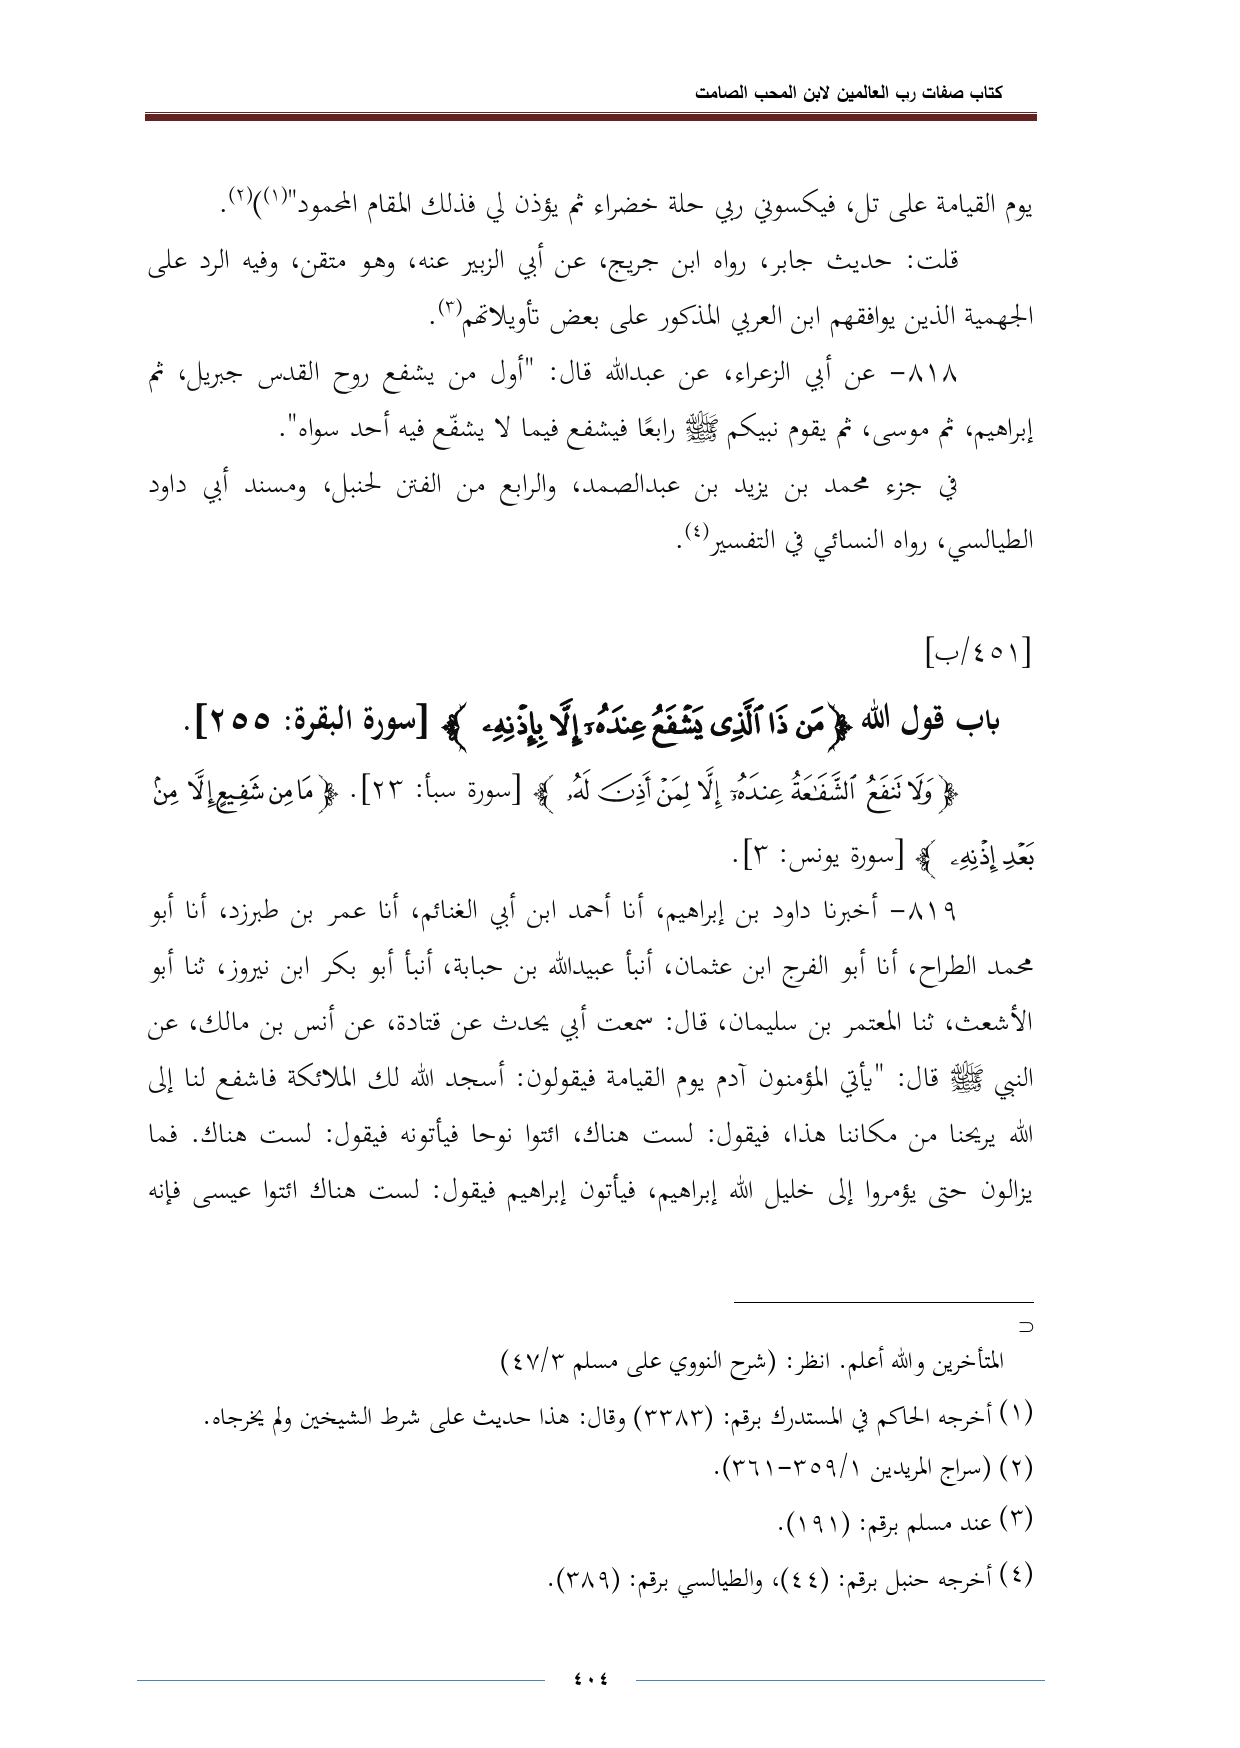 كتاب صفات رب العالمين لابن المحب الصامت
يوم القيامة على تل، فيكسوني ربي حلة خضراء ثم يؤذن لي فذلك المقام المحمود"(١))(٢).
قلت: حديث جابر، رواه ابن جريج، عن أبي الزبير عنه، وهو متقن، وفيه الرد على
الجهمية الذين يوافقهم ابن العربي المذكور على بعض تأويلاتهم(٣).
٨١٨- عن أبي الزعراء، عن عبدالله قال: "أول من يشفع روح القدس جبريل، ثم
إبراهيم، ثم موسى، ثم يقوم نبيكم ﷺ رابعًا فيشفع فيما لا يشفّع فيه أحد سواه".
في جزء محمد بن يزيد بن عبدالصمد، والرابع من الفتن لحنبل، ومسند أبي داود
الطيالسي، رواه النسائي في التفسير(٤).
[٤٥١/ب]
باب قول الله ﴿مَن ذَا ٱلَّذِى يَشْفَعُ عِندَهُۥٓ إِلَّا بِإِذْنِهِۦ ﴾ [سورة البقرة: ٢٥٥].
﴿وَلَا تَنفَعُ ٱلشَّفَٰعَةُ عِندَهُۥٓ إِلَّا لِمَنْ أَذِنَ لَهُۥ ﴾ [سورة سبأ: ٢٣]. ﴿مَا مِن شَفِيعٍ إِلَّا مِنۢ
بَعْدِ إِذْنِهِۦ ﴾ [سورة يونس: ٣].
٨١٩- أخبرنا داود بن إبراهيم، أنا أحمد ابن أبي الغنائم، أنا عمر بن طبرزد، أنا أبو
محمد الطراح، أنا أبو الفرج ابن عثمان، أنبأ عبيدالله بن حبابة، أنبأ أبو بكر ابن نيروز، ثنا أبو
الأشعث، ثنا المعتمر بن سليمان، قال: سمعت أبي يحدث عن قتادة، عن أنس بن مالك، عن
النبي ﷺ قال: "يأتي المؤمنون آدم يوم القيامة فيقولون: أسجد الله لك الملائكة فاشفع لنا إلى
الله يريحنا من مكاننا هذا، فيقول: لست هناك، ائتوا نوحا فيأتونه فيقول: لست هناك. فما
يزالون حتى يؤمروا إلى خليل الله إبراهيم، فيأتون إبراهيم فيقول: لست هناك ائتوا عيسى فإنه
⊃
المتأخرين والله أعلم. انظر: (شرح النووي على مسلم ٤٧/٣)
(١) أخرجه الحاكم في المستدرك برقم: (٣٣٨٣) وقال: هذا حديث على شرط الشيخين ولم يخرجاه.
(٢) (سراج المريدين ٣٥٩/١-٣٦١).
(٣) عند مسلم برقم: (١٩١).
(٤) أخرجه حنبل برقم: (٤٤)، والطيالسي برقم: (٣٨٩).
٤٠٤